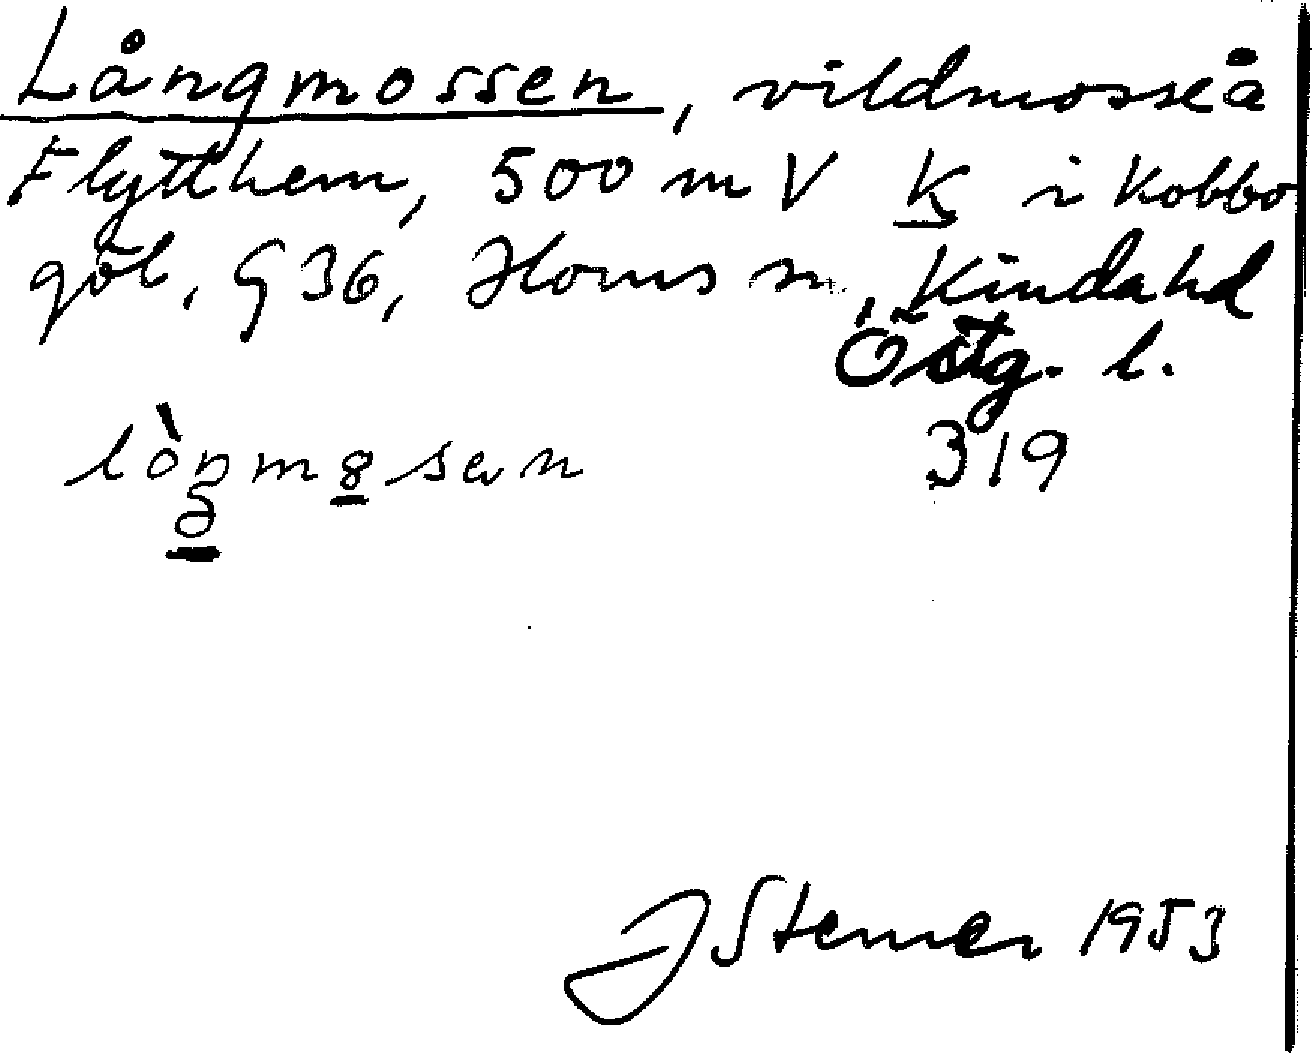 Långmossen, vildmosse å
Flytthem, 500 m V K i Kobbo
göl, G 36, Horns sn, Kinda hd
Östg. l.
lòŋmȣsən 319
J Sterner 1953